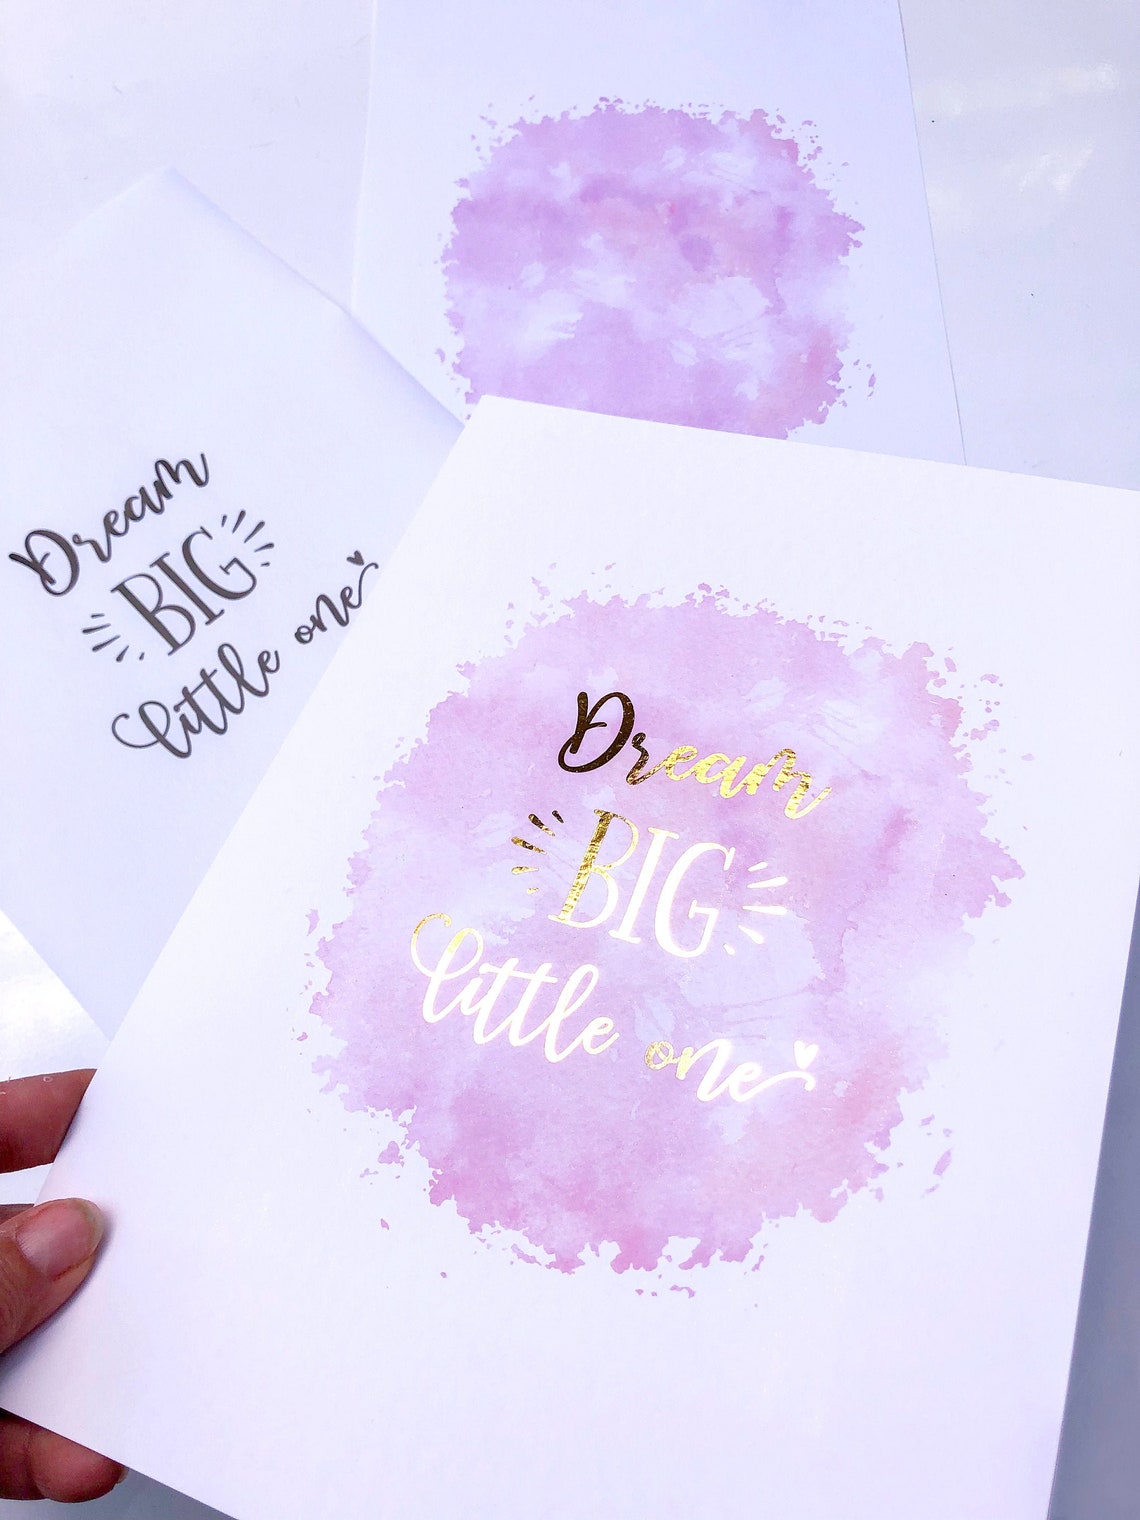 Dream
BIG
little one
Dream
BIG
little one